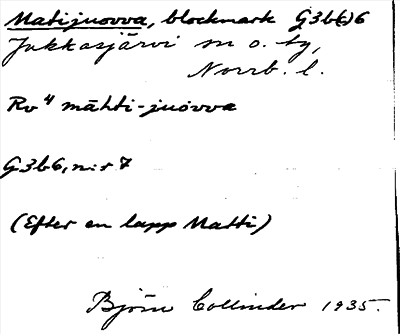 Matijuovva, blockmark G3b(c)6
Jukkasjärvi sn o. tg,
Norrb. l.
Rv 4 mãhti-juovva
G3b6, n:r 7
(Efter en lapp Matti)
Björn Collinder 1935.